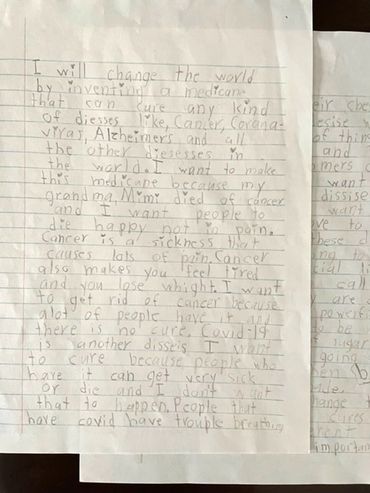 I will change the world
by inventing a medicane
that can cure any kind
of diesses like, Cancer, Corona-
viras, Alzheimers and all
the other diesesses in
the world. I want to make
this medicane because my
grandma Mimi died of cancer
and I want people to
die happy not in pain.
Cancer is a sickness that
causes lots of pain. Cancer
also makes you feel tired
and you lose whight. I want
to get rid of cancer because
alot of people have it and
there is no cure. Covid-19
is another disseis I want
to cure because people who
have it can get very sick
or die and I don't want
that to happen. People that
have covid have trouple breathing
eir che
esise w
of thin
and
mers c
want
dissise
want
ove to
these d
ng to
cial li
call
y are
powerfu
to be
f sugar
going
hen (b
ide.
hange t
cures
erent
importan